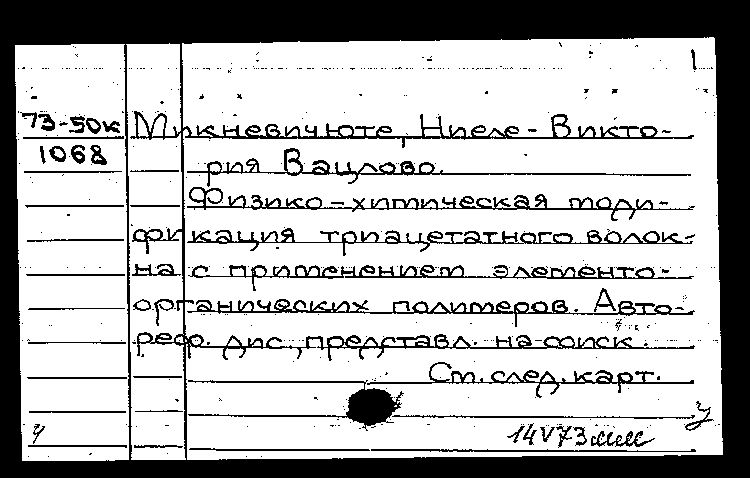 1
73-50к Микневичюте, Ниеле-Викто-
1068 рия Вацлово.
Физико-химическая моди-
фикация триацетатного волок-
на с применением элементо-
органических полимеров. Авто-
реф. дис., представл. на соиск.
См. след. карт.
у
14 V 73
у